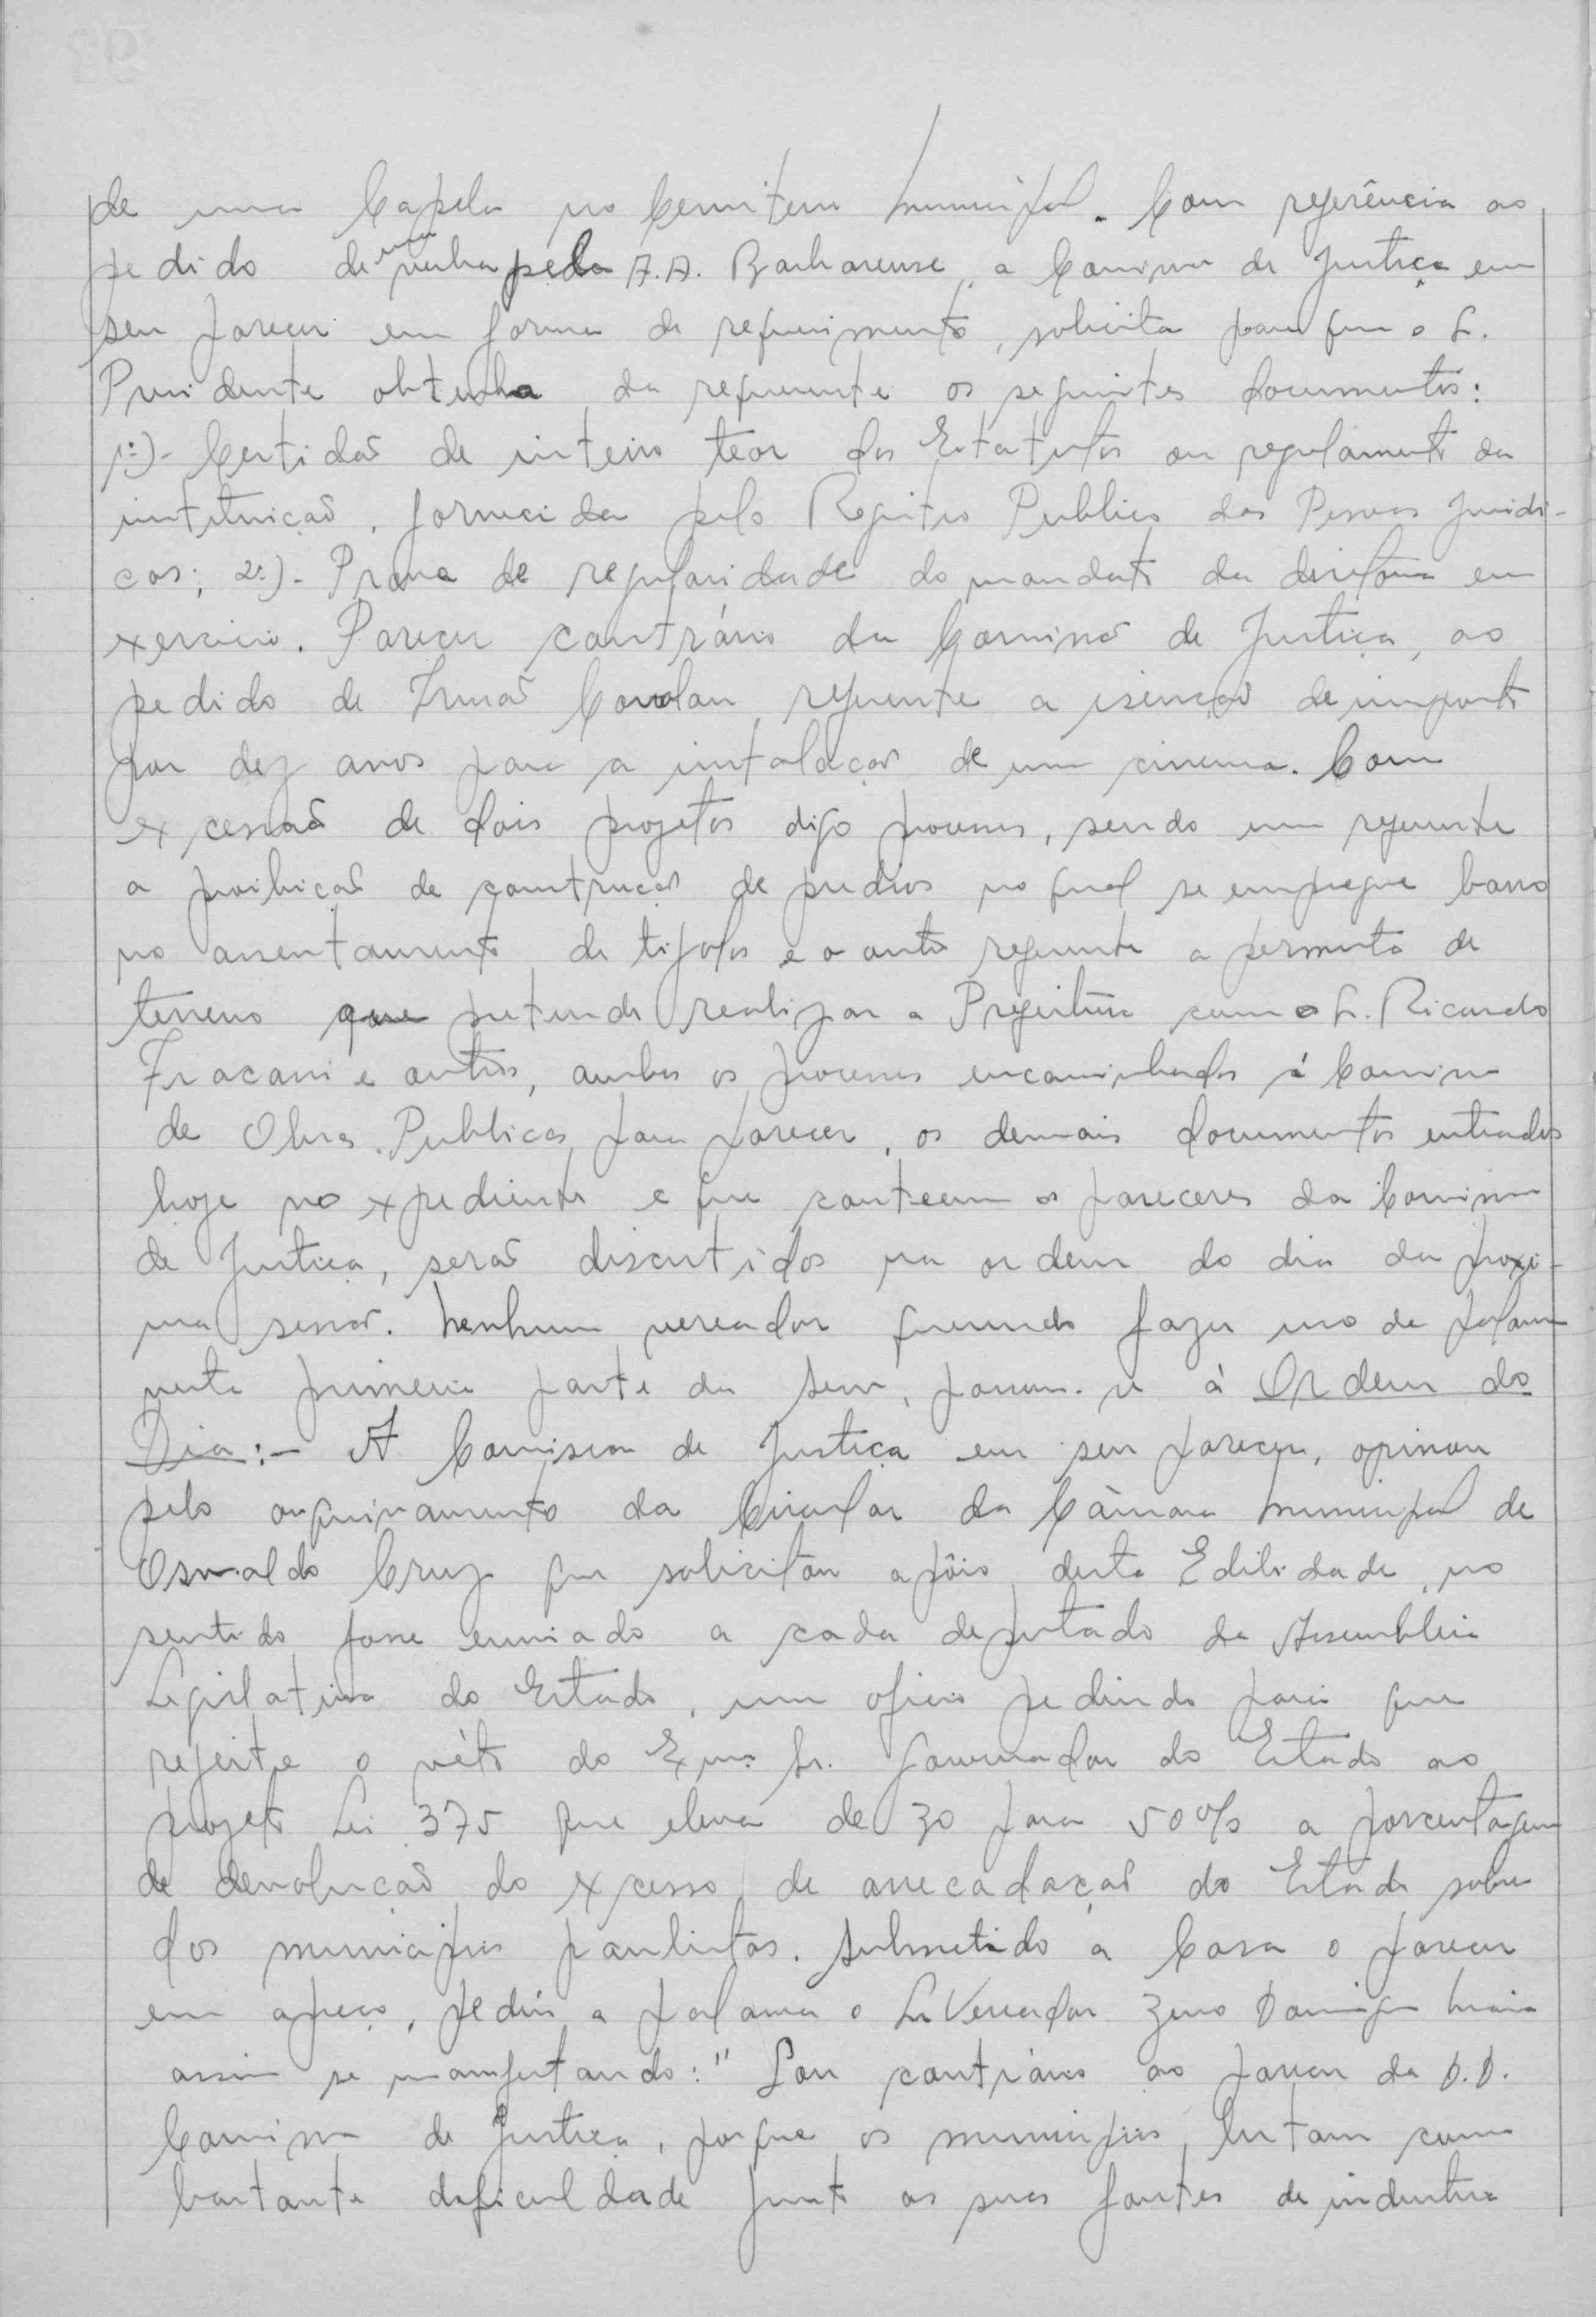 de uma Capela no Cemiterio Municipal. Com referência ao
pedido de uma verba pela A.A. Barbarense, a Comissão de Justiça em
seu parecer em forma de requerimento, solicita para que o Sr.
Presidente obtenha da requerente os seguintes documentos:
1º)- Certidão de inteiro teor dos Estatutos ou regulamento da
instituição, fornecida pelo Registro Publico das Pessoas Juridi-
cas; 2º)- Prova de regularidade do mandato da diretoria em
exercicio. Parecer contrário da Comissão de Justiça, ao
pedido de Irmão Covolan, referente a isenção de imposto
por dez anos para a instalação de um cinema. Com
excessão de dois projetos digo processos, sendo um referente
a proibição de construção de predios no qual se empregue barro
no assentamento de tijolos e o outro referente a permuta de
terreno que pretende realizar a Prefeitura com o Sr. Ricardo
Fracassi e outros, ambos os processos encaminhados á Comissão
de Obras Publicas, para parecer, os demais documentos entrados
hoje no expediente e que conteem os pareceres da Comissão
de Justiça, serão discutidos na ordem do dia da proxi-
ma sessão. Nenhum vereador querendo fazer uso da palavra
nesta primeira parte da sessão, passou-se à Ordem do
Dia:- A Comissão de Justiça em seu parecer, opinou
pelo arquivamento da Circular da Câmara Municipal de
Osvaldo Cruz que solicitou apôio desta Edilidade, no
sentido fosse enviado a cada deputado da Assembleia
Legislativa do Estado, um oficio pedindo para que
rejeite o véto do Exmo. Sr. Governador do Estado ao
projeto Lei 375 que eleva de 30 para 50% a porcentagem
de devolução do excesso de arrecadação do Estado sobre
dos municipios paulistas. Submetido a Casa o parecer
em apreço, pediu a palavra o Sr Vereador Zeno Domingos Maia
assim se manifestando: " Sou contrário ao parecer da D.D.
Comissão de Justiça, porque os municipios, lutam com
bastante dificuldade junto as suas fontes de industria